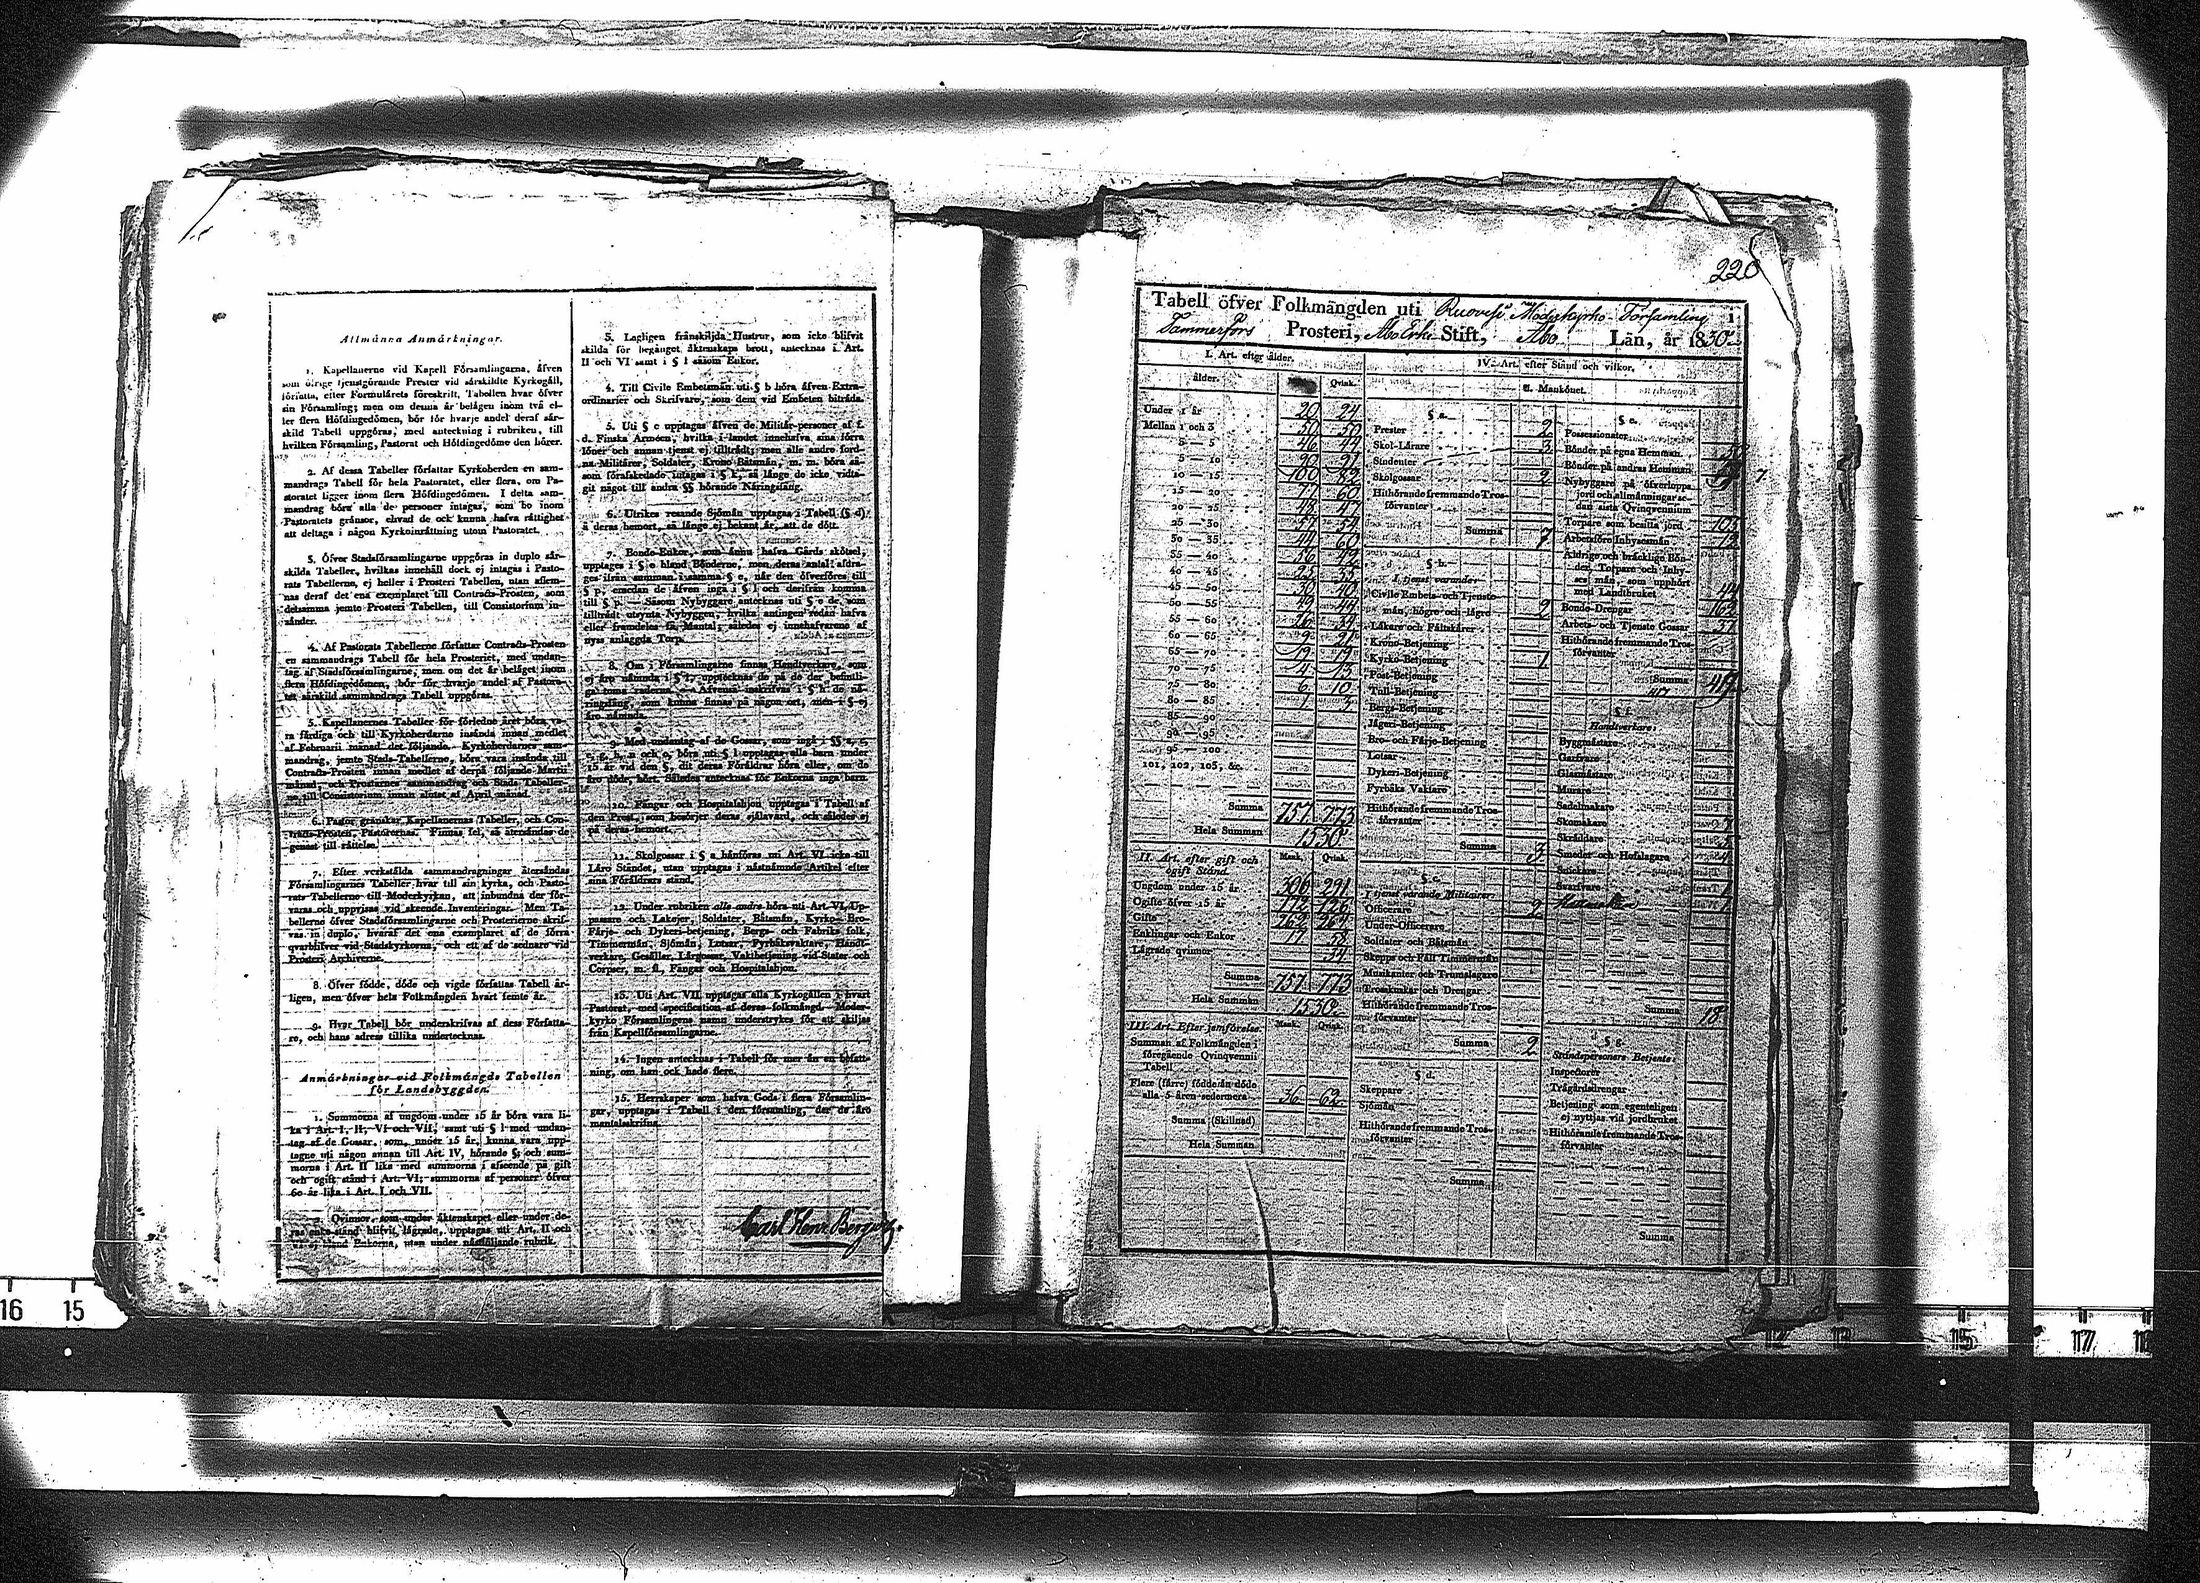 Allmänna Anmärkningar.
1. Kapellanerne vid Kapell Församlingarna, äfven
som öfrige tjenstgörande Prester vid särskildte Kyrkogäll,
författa, efter Formulärets föreskrift, Tabellen hvar öfver
sin Församling; men om denna är belägen inom två el-
ler flera Höfdingedömen, bör för hvarje andel deraf sär-
skild Tabell uppgöras, med anteckning i rubriken, till
hvilken Församling, Pastorat och Höfdingedöme den hörer.
2. Af dessa Tabeller författar Kyrkoherden en sam-
mandrags Tabell för hela Pastoratet, eller flera, om Pa-
storatet ligger inom flera Höfdingedömen. I detta sam-
mandrag böra alla de personer intagas, som bo inom
Pastoratets gränsor, ehvad de ock kunna hafva rättighet
att deltaga i någon Kyrkoinrättning utom Pastoratet.
3. Öfver Stadsförsamlingarne uppgöras in duplo sär-
skilda Tabeller, hvilkas innehåll dock ej intagas i Pasto-
rats Tabellerne, ej heller i Prosteri Tabellen, utan aflem-
nas deraf det ena exemplaret till Contracts-Prosten, som
detsamma jemte Prosteri Tabellen, till Consistorium in-
sänder.
4. Af Pastorats Tabellerne författar Contracts-Prosten
en sammandrags Tabell för hela Prosteriet, med undan-
tag af Stadsförsamlingarne; men om det är beläget inom
flera Höfdingedömen, bör för hvarje andel af Pastora-
tet särskild sammandrags Tabell uppgöras.
5. Kapellanernes Tabeller för förledne året böra va-
ra färdiga och till Kyrkoherdarne insända innan medlet
af Februarii månad det följande. Kyrkoherdarnes sam-
mandrag, jemte Stads-Tabellerne, böra vara insända till
Contracts-Prosten innan medlet af derpå följande Martii
månad; och Prostarnes sammandrag och Stads-Tabeller-
ne till Consistorium innan slutet af April månad.
6. Pastor granskar Kapellanernas Tabeller, och Con-
tracts-Prosten, Pastorernas. Finnas fel, så återsändas de
genast till rättelse.
7. Efter verkställda sammandragningar återsändas
Församlingarnes Tabeller hvar till sin kyrka, och Pasto-
rats Tabellerne till Moderkyrkan, att inbundna der för-
varas och uppvisas vid skeende Inventeringar. Men Ta-
bellerne öfver Stadsförsamlingarne och Prosterierne skrif-
vas in duplo, hvaraf det ena exemplaret af de förra
qvarblifver vid Stadskyrkorna, och ett af de sednare vid
Prosteri Archiverne.
8. Öfver födde, döde och vigde författas Tabell år-
ligen, men öfver hela Folkmängden hvart femte år.
9. Hvar Tabell bör underskrifvas af dess Författa-
re, och hans adress tillika undertecknas.
Anmärkningar vid Folkmängds Tabellen
för Landsbyggden.
1. Summorna af ungdom under 15 år böra vara li-
ka i Art. I, II, VI och VII, samt uti § l med undan-
tag af de Gossar, som, under 15 år, kunna vara upp-
tagne uti någon annan till Art. IV, hörande §; och sum-
morna i Art. II lika med summorna i afseende på gift
och ogift stånd i Art. VI; summorna af personer öfver
60 år lika i Art. I och VII.
2. Qvinnor, som under äktenskapet eller under de-
ras enke-stånd blifvit lägrade, upptagas uti Art. II och
VI ej bland Enkorna, utan under nästföljande rubrik.
3. Lagligen frånskiljda Hustrur, som icke blifvit
skilda för begånget äktenskaps brott, antecknas i Art.
II och VI samt i § l såsom Enkor.
4. Till Civile Embetsmän uti § b höra äfven Extra-
ordinarier och Skrifvare, som dem vid Embeten biträda.
5. Uti § c upptagas äfven de Militär-personer af f.
d. Finska Arméen, hvilka i landet innehafva sina förra
löner och annan tjenst ej tillträdt; men alle andre ford-
na Militärer, Soldater, Krono-Båtsmän, m. m. böra så-
som förafskedade intagas i § k, så länge de icke vidta-
git något till andra §§ hörande Näringsfång.
6. Utrikes resande Sjömän upptagas i Tabell (§ d)
å deras hemort, så länge ej bekant är, att de dött.
7. Bonde-Enkor, som ännu hafva Gårds skötsel,
upptages i § e bland Bönderne, men deras antal afdra-
ges ifrån summan i samma § e, när den öfverföres till
§ p, emedan de äfven ingå i § l och derifrån komma
till § p. — Såsom Nybyggare antecknas uti § e de, som
tillträdt utrymta Nybyggen, hvilka antingen redan hafva
eller framdeles få Mantal; således ej innehafvarene af
nyss anlaggda Torp.
8. Om i Församlingarne finnas Handtverkare, som
ej äro nämnda i § f, upptecknas de på de der befintli-
ga toma raderna. — Äfvenså inskrifvas i § h de nä-
ringsfång, som kunna finnas på någon ort, men i § ej
äro nämnda.
9. Med undantag af de Gossar, som ingå i §§ a, c,
d, e, g och o, böra uti § l upptagas alla barn under
15 år vid den §, dit deras Föräldrar höra eller, om de
äro döde, hört. Således antecknas för Enkorna inga barn.
10. Fångar och Hospitalshjon upptagas i Tabell af
den Prest, som besörjer deras själavård, och således ej
på deras hemort.
11. Skolgossar i § a hänföras uti Art. VI icke till
Läro Ståndet, utan upptagas i nästnämnde Artikel efter
sina Föräldrars stånd.
12. Under rubriken alle andre höra uti Art. VI, Up-
passare och Lakejer, Soldater, Båtsmän, Kyrko- Bro-
Färje- och Dykeri-betjening, Bergs- och Fabriks folk,
Timmermän, Sjömän, Lotsar, Fyrbåksvaktare, Handt-
verkare, Gesäller, Lärgossar, Vaktbetjening vid Stater och
Corpser, m. fl., Fångar och Hospitalshjon.
13. Uti Art. VII upptagas alla Kyrkogällen i hvart
Pastorat, med specification af deras folkmängd. Moder-
kyrko Församlingens namn understrykes för att skiljas
från Kapellförsamlingarne.
14. Ingen antecknas i Tabell för mer än en befatt-
ning, om han ock hade flere.
15. Herrskaper som hafva Gods i flera Församlin-
gar, upptagas i Tabell i den församling, der de äro
mantalsskrifna.
Carl Henr Bergroth
220
Tabell öfver Folkmängden uti Ruovesi Moderkyrko Församling 1
Tammerfors Prosteri, Åbo Erke Stift, Åbo Län, år 1830
I. Art. efter ålder.
ålder. Qvink.
Under 1 år 20 24
Mellan 1 och 3 50 50
3 — 5 46 44
5 — 10 90 91
10 — 15 100 82
15 — 20 77 60
20 — 25 48 47
25 — 30 57 54
30 — 35 44 60
35 — 40 56 42
40 — 45 25 35
45 — 50 30 40
50 — 55 49 44
55 — 60 26 39
60 — 65 9 21
65 — 70 19 19
70 — 75 4 13
75 — 80 6 10
80 — 85 1
85 — 90
90 — 95
95 — 100
101, 102, 103, &c.
Summa 757 773
Hela Summan 1530
II. Art. efter gift och ogift Stånd. Mank. Qvink.
Ungdom under 15 år 306 291
Ogifte öfver 15 år 172 126
Gifte 262 264
Enklingar och Enkor 17 58
Lägrade qvinnor 34
Summa 757 773
Hela Summan 1530
III. Art. Efter jemförelse. Mank. Qvink.
Summan af Folkmängden i
föregående Qvinqvennii
Tabell
Flere (färre) födde än döde
alla 5 åren sedermera 36 62
Summa (Skillnad)
Hela Summan
IV. Art. efter Stånd och vilkor.
A. Mankönet.
§ a.
Prester 2
Skol-Lärare 3
Studenter
Skolgossar 2
Hithörande fremmande Tros-
förvanter
Summa 7
§ b.
I tjenst varande
Civile Embets- och Tjenste-
män, högre och lägre 2
Läkare och Fältskärer
Krono-Betjening
Kyrko-Betjening 1
Post-Betjening
Tull-Betjening
Bergs-Betjening
Jägeri-Betjening
Bro- och Färje-Betjening
Lotsar
Dykeri-Betjening
Fyrbåks Vaktare
Hithörande fremmande Tros-
förvanter
Summa 3
§ c.
I tjenst varande Militairer
Officerare 2
Under-Officerare
Soldater och Båtsmän
Skepps och Fält Timmermän
Musikanter och Trumslagare
Trosskuskar och Drengar
Hithörande fremmande Tros-
förvanter
Summa 2
§ d.
Skeppare
Sjömän
Hithörande fremmande Tros-
förvanter
Summa
§ e.
Possessionater
Bönder på egna Hemman
Bönder på andras Hemman
Nybyggare på öfverlopps
jord och allmänningar se-
dan sista Qvinqvennium
Torpare som besitta jord 103
Arbetsföre Inhysesmän
Åldrige och bräcklige Bön-
der, Torpare och Inhy-
ses män, som upphört
med Landtbruket 44
Bonde-Drengar 162
Arbets- och Tjenste Gossar 37
Hithörande fremmande Tros-
förvanter
Summa 417
417
§ f.
Handtverkare:
Byggmästare
Garfvare
Glasmästare
Murare
Sadelmakare
Skomakare 7
Skräddare 5
Smeder och Hofslagare 4
Snickare
Svarfvare 1
1
Summa 18
§ g.
Ståndspersoners Betjente:
Inspectorer
Trägårdsdrengar
Betjening som egenteligen
ej nyttjas vid jordbruket
Hithörande fremmande Tros-
förvanter
Summa
7
16 15
15 17